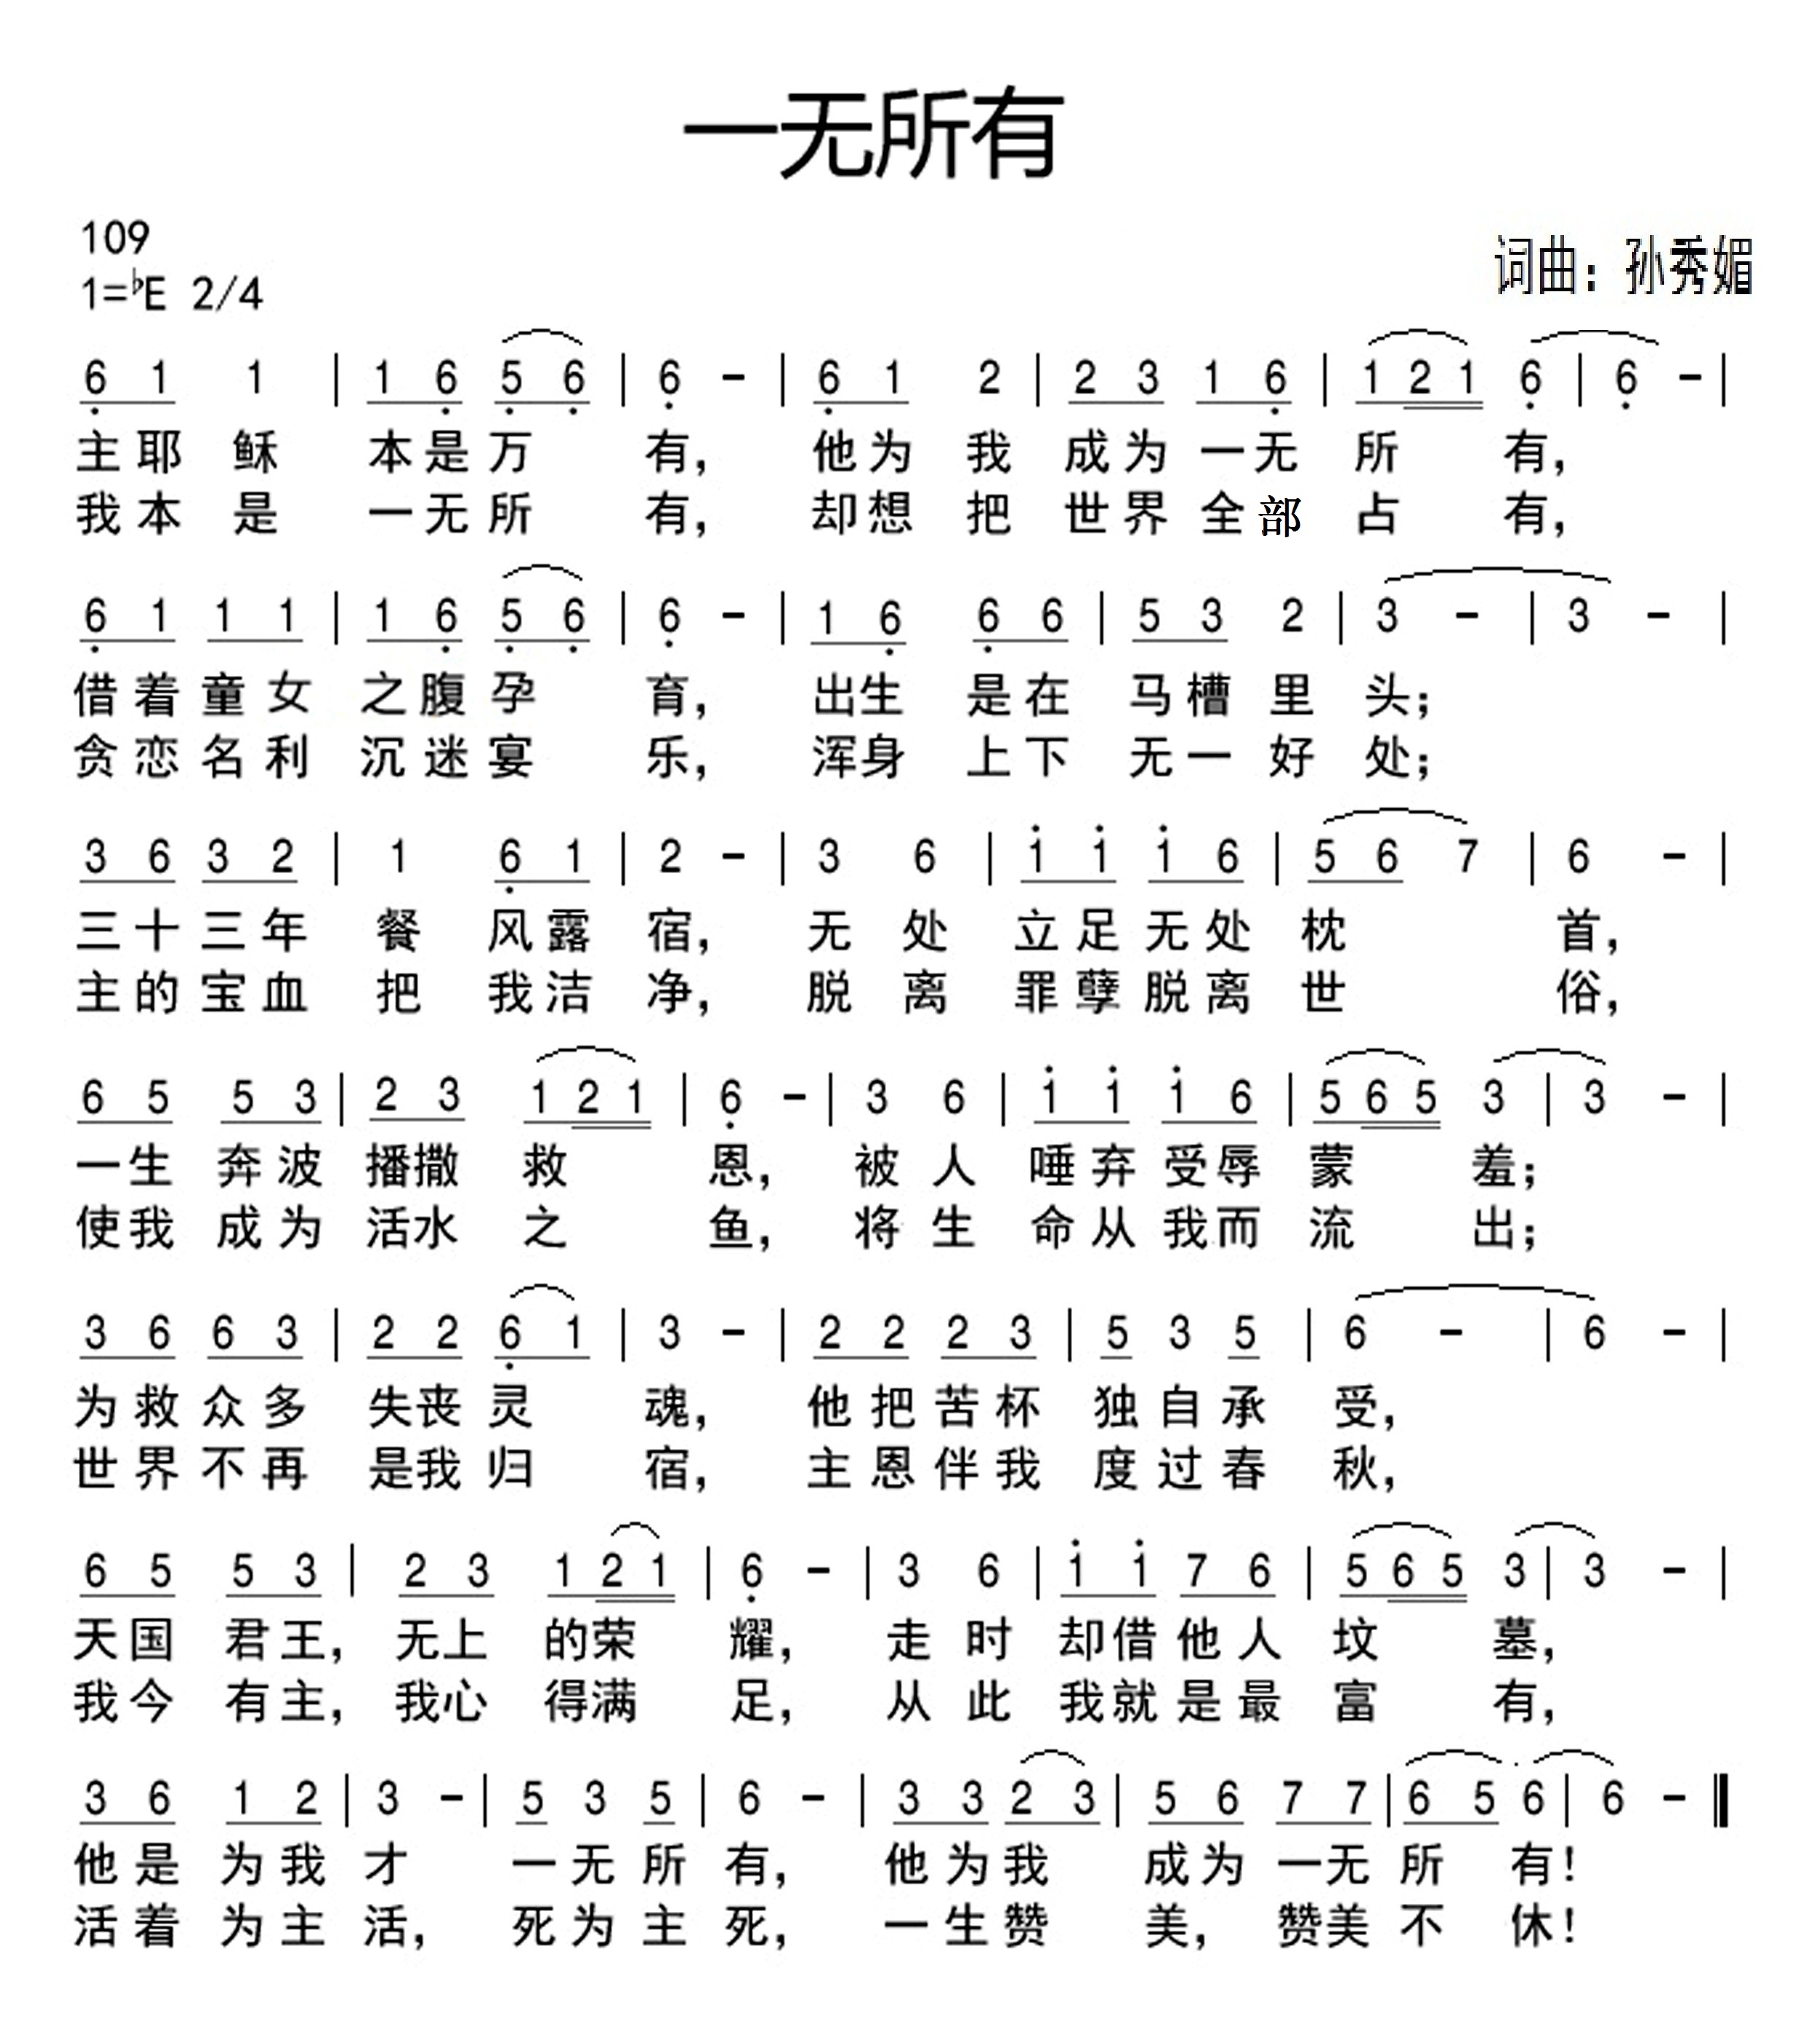 一无所有
109
词曲：孙秀媚
1=♭E 2/4
6̣ 1 1 | 1 6̣ 5̣ 6̣ | 6̣ - | 6̣ 1 2 | 2 3 1 6̣ | 1 2 1 6̣ | 6̣ - |
主耶 稣 本是万 有， 他为 我 成为 一无 所 有，
我本 是 一无所 有， 却想 把 世界 全部 占 有，
6̣ 1 1 1 | 1 6̣ 5̣ 6̣ | 6̣ - | 1 6̣ 6̣ 6 | 5 3 2 | 3 - | 3 - |
借着童女 之腹孕 育， 出生 是在 马槽 里 头；
贪恋名利 沉迷宴 乐， 浑身 上下 无一 好 处；
3 6 3 2 | 1 6̣ 1 | 2 - | 3 6 | 1̇ 1̇ 1̇ 6 | 5 6 7 | 6 - |
三十三年 餐 风露 宿， 无 处 立足无处 枕 首，
主的宝血 把 我洁 净， 脱 离 罪孽脱离 世 俗，
6 5 5 3 | 2 3 1 2 1 | 6̣ - | 3 6 | 1̇ 1̇ 1̇ 6 | 5 6 5 3 | 3 - |
一生 奔波 播撒 救 恩， 被 人 唾弃受辱 蒙 羞；
使我 成为 活水 之 鱼， 将 生 命从我而 流 出；
3 6 6 3 | 2 2 6̣ 1 | 3 - | 2 2 2 3 | 5 3 5 | 6 - | 6 - |
为救众多 失丧灵 魂， 他把苦杯 独自承 受，
世界不再 是我归 宿， 主恩伴我 度过春 秋，
6 5 5 3 | 2 3 1 2 1 | 6̣ - | 3 6 | 1̇ 1̇ 7 6 | 5 6 5 3 | 3 - |
天国 君王， 无上 的荣 耀， 走 时 却借他人 坟 墓，
我今 有主， 我心 得满 足， 从 此 我就是最 富 有，
3 6 1 2 | 3 - | 5 3 5 | 6 - | 3 3 2 3 | 5 6 7 7 | 6 5 6 | 6 - ‖
他是 为我 才 一无所 有， 他为我 成为 一无 所 有！
活着 为主 活， 死为主 死， 一生赞 美， 赞美 不 休！